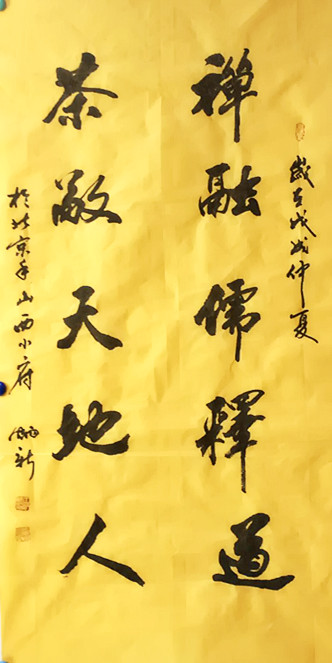 岁在戊戌仲夏
禅融儒釋道
茶敬天地人
於北京香山西小府